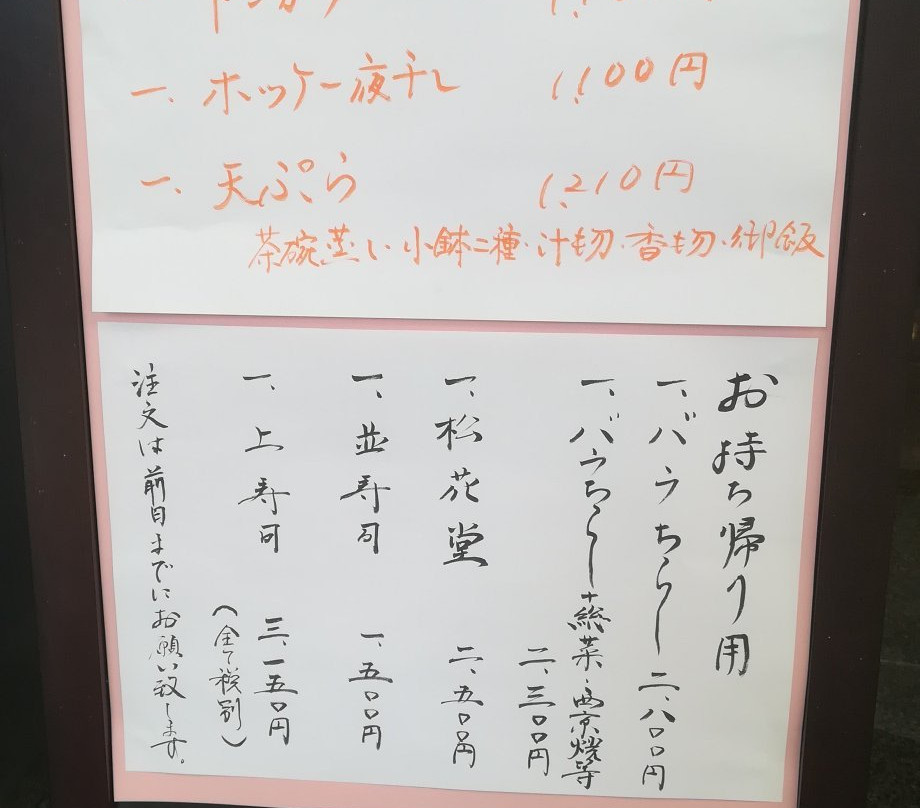 一、ホッケ一夜干し 1,100円
一、天ぷら 1,210円
茶碗蒸し・小鉢二種・汁物・香物・御飯
お持ち帰り用
一、バラちらし 二、八〇〇円
一、バラちらし+総菜・西京焼等
二、三〇〇円
一、松花堂 二、五〇〇円
一、並寿司 一、五〇〇円
一、上寿司 三、一五〇円
(全て税別)
注文は前日までにお願い致します。